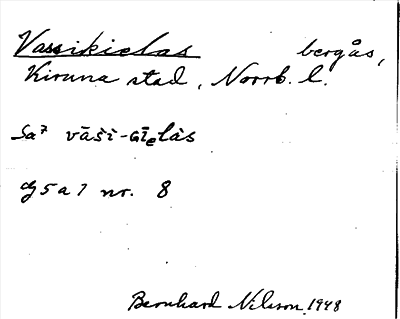 Vassikielas bergås,
Kiruna stad, Norrb. l.
Sa⁷ vāši-
G 5 a 7 nr. 8
Bernhard Nilsson 1948